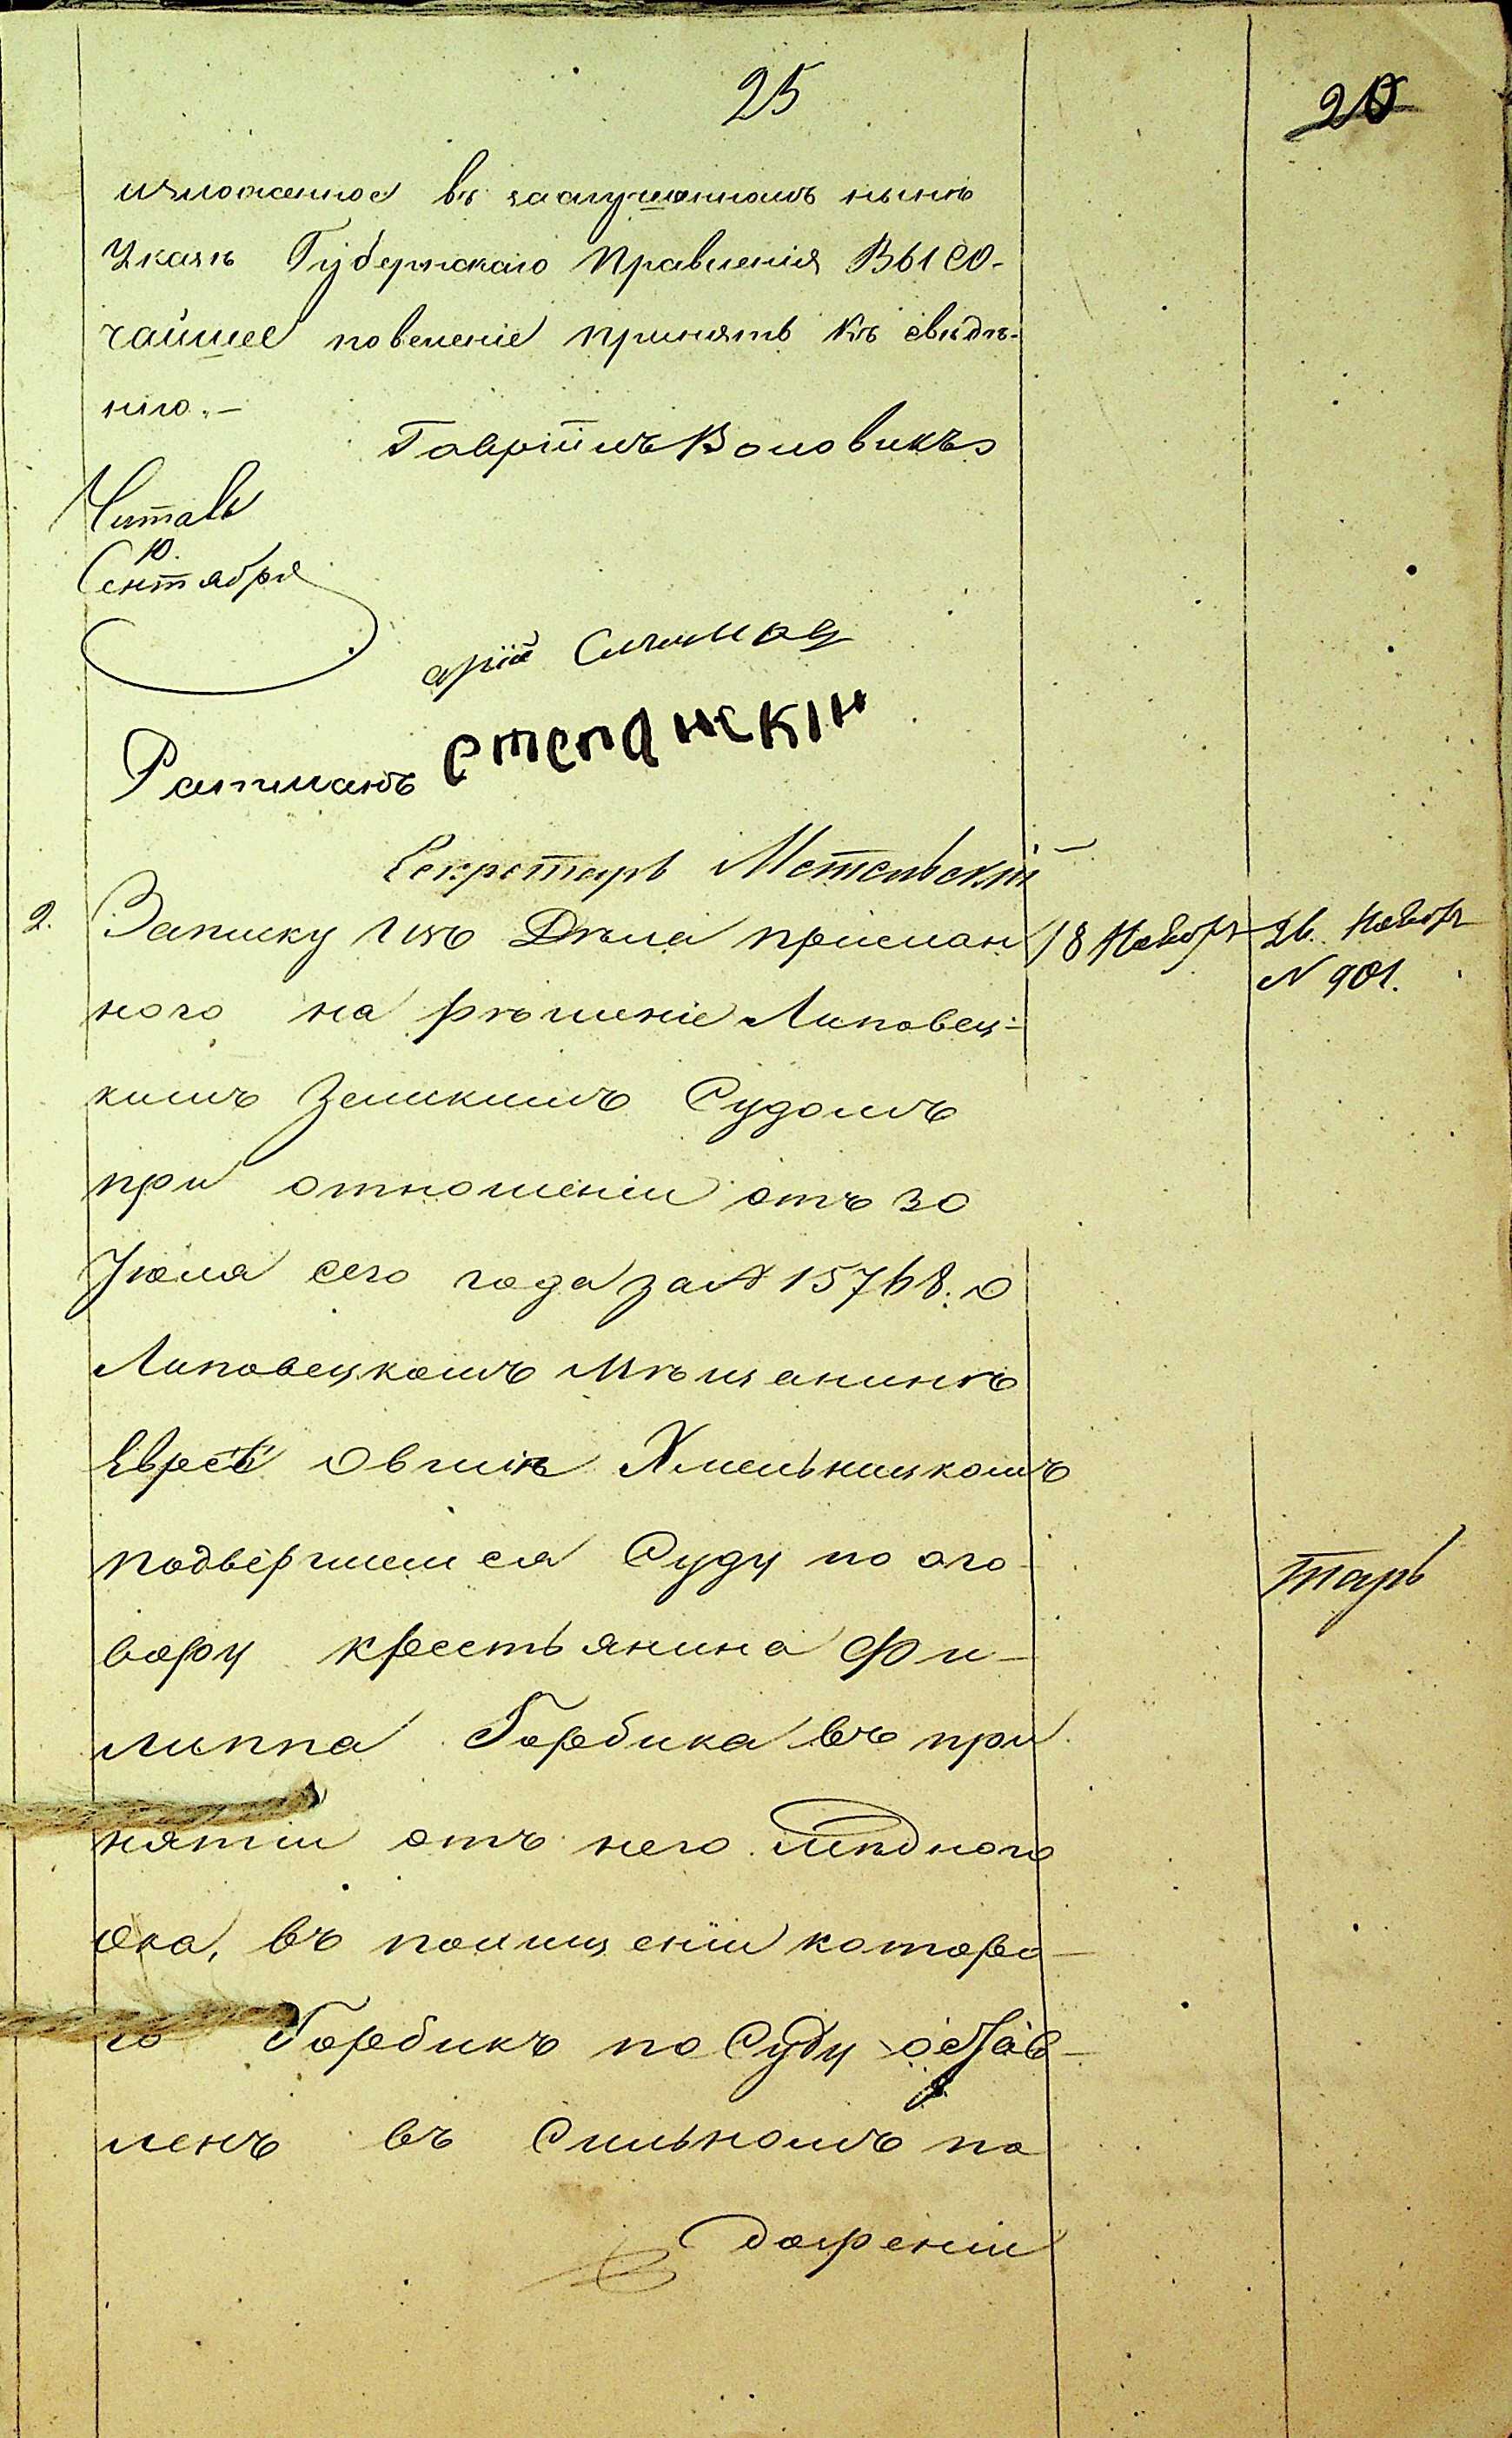 25
20
изложенное въ заслушанномъ нынѣ
Указѣ Губернскаго Правленія ВЫСО-
чайшее повеленіе принять къ свѣдѣ-
нію.-
Гаврiилъ Воловикъ
Читалъ
10.
Сентября
Ратманъ степанскін
Секретарь Метельскій
2. Записку изъ Дѣла прислан 18 Ноябр 26. Ноябр
N 901.
ного на рѣшеніе Липовец-
кимъ Земскимъ Судомъ
при отношеніи отъ 30
Іюля сего года за N 15768. О
Липовецкомъ Мѣщанинѣ
Евреѣ Овшіѣ Хмельницкомъ
подвергшемся Суду по ого-
вору крестьянина Фи-
липпа Горбика въ при
нятіи отъ него мѣдного
ока, въ похищеніи которо-
го Горбикъ по Суду остав-
ленъ въ Сильномъ по
дозреніи
тарь